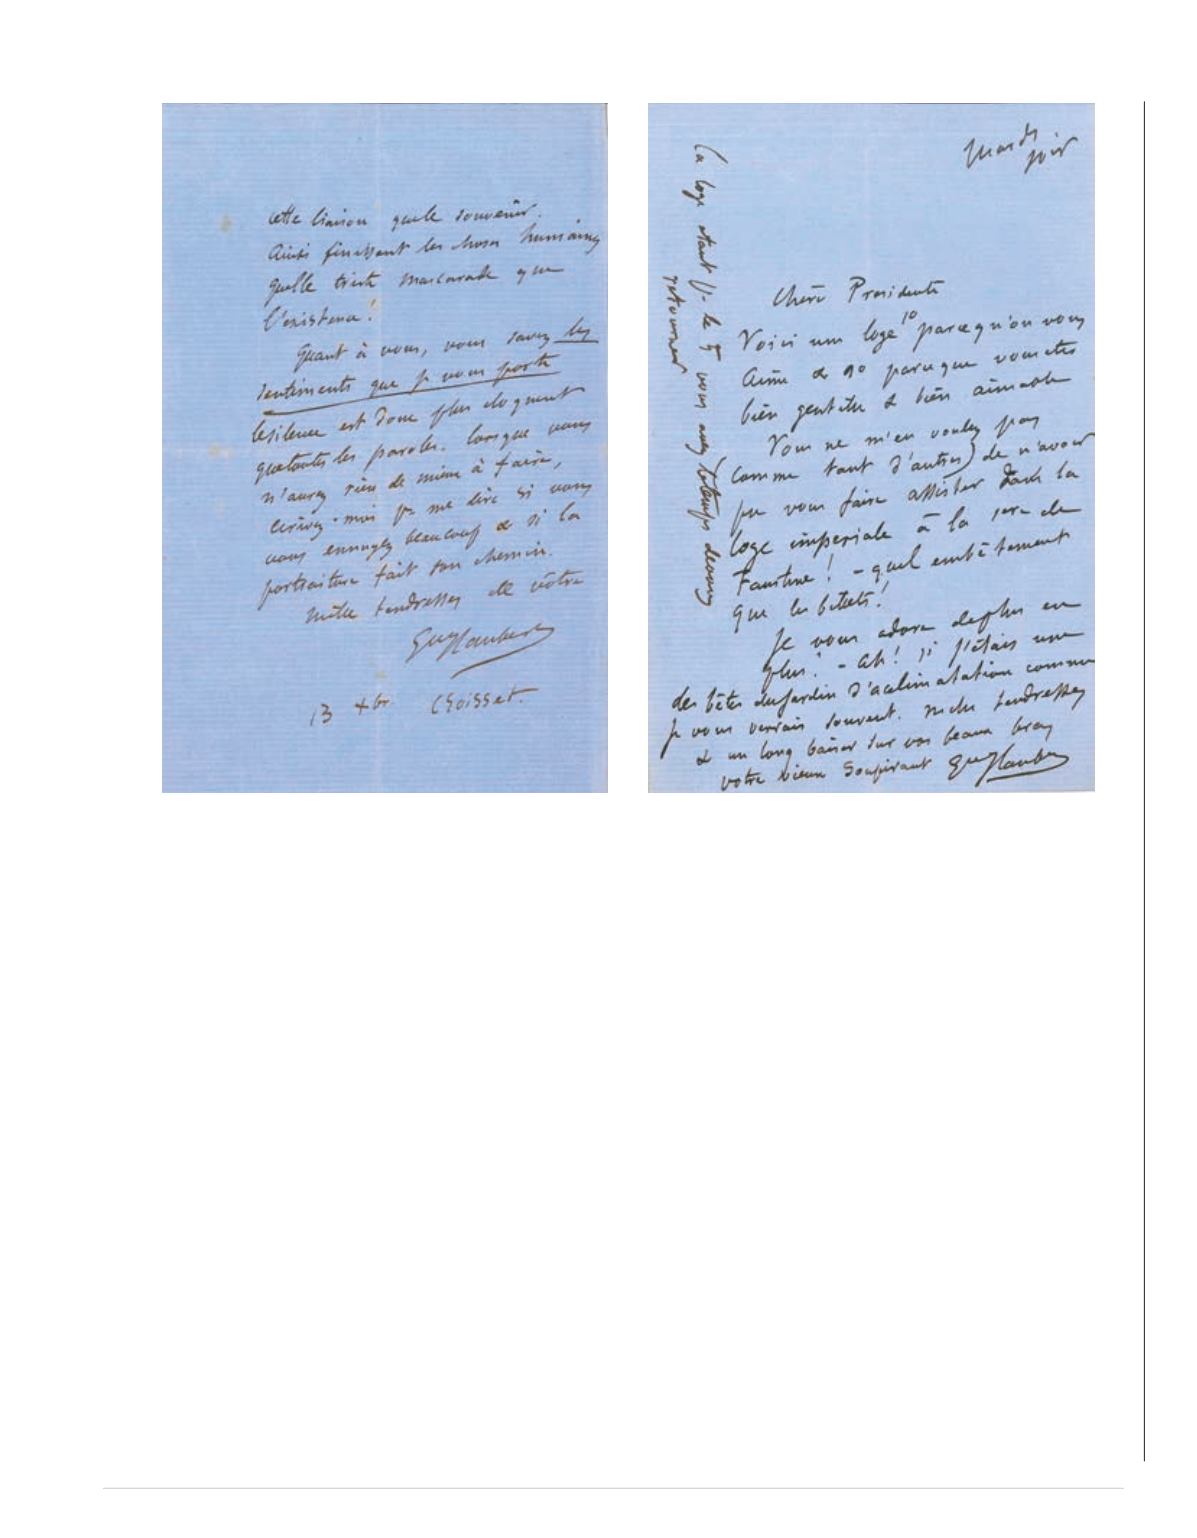 cette liaison que le souvenir.
Ainsi finissent les choses humaines
quelle triste mascarade que
l'existence!
Quant à vous, vous savez les
sentiments que je vous porte
le silence est donc plus eloquent
que toutes les paroles. Lorsque vous
n'aurez rien de mieux à faire,
ecrivez-moi pr me dire si vous
vous ennuyez beaucoup & si la
portraiture fait son chemin.
mille tendresses de vôtre
Gve Flaubert
13 Croisset.
Mardi
soir
Chère Presidente
Voici une loge 1o parce qu'on vous
aime & 2o parce que vous etes
bien gentille & bien aimable
Vous ne m'en voulez pas
(comme tant d'autres) de n'avoir
pu vous faire assister dans la
loge imperiale à la 1ere de
Faustine! - quel embêtement
que les billets!
Je vous adore de plus en
plus! - Ah! si j'étais une
des bêtes du jardin d'aclimatation comme
je vous verrais souvent. mille tendresses
& un long baiser sur vos beaux bras
votre vieux soupirant Gve Flaubert
la loge etant pr le 5 vous avez le temps de vous
retourner